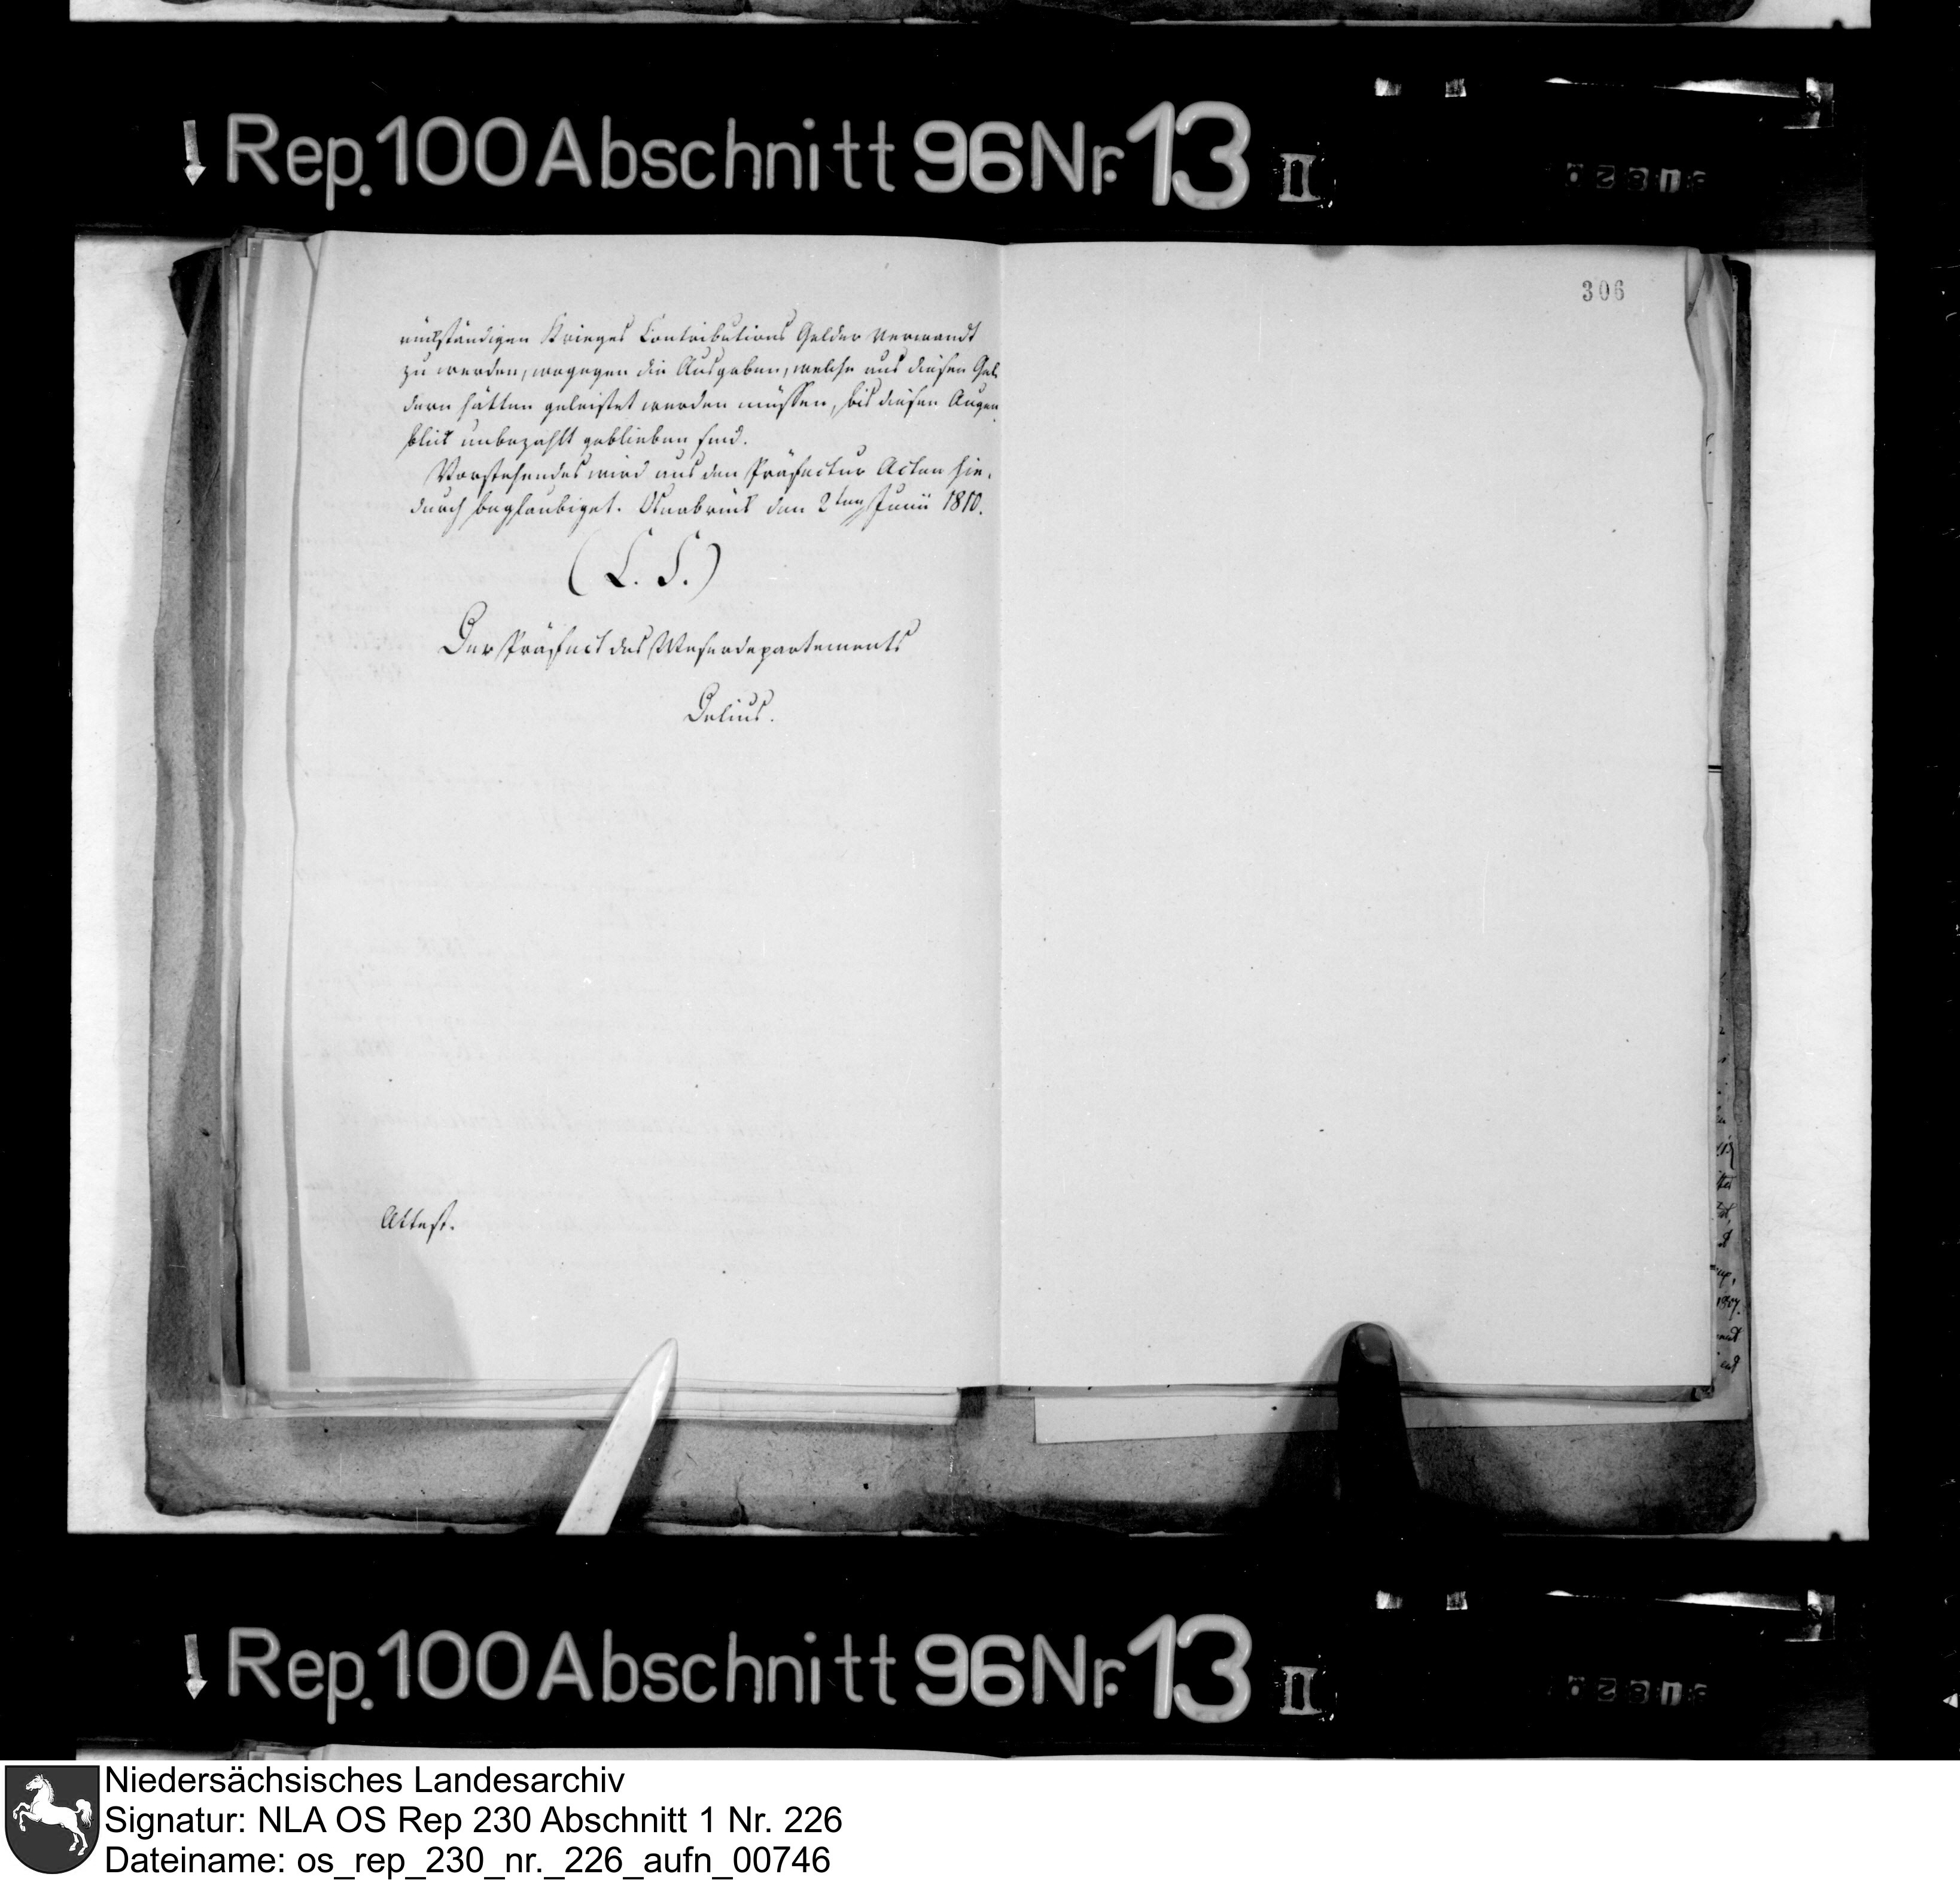 Rep. 100 Abschnitt 96 Nr. 13 II
306
rückständigen Krieges Contributions Gelder verwandt
zu werden, wogegen die Ausgaben, welche aus diesen Gel-
dern hätten geleistet werden müssen, bis diesen Augen
blick unbezahlt geblieben sind.
Vorstehendes wird aus den Präfectur Acten hie-
durch beglaubiget. Osnabrück den 2ten Junii 1810.
(L. S.)
Der Präfect des Weserdepartements
Delius.
Attest.
Rep. 100 Abschnitt 96 Nr. 13 II
Niedersächsisches Landesarchiv
Signatur: NLA OS Rep 230 Abschnitt 1 Nr. 226
Dateiname: os_rep_230_nr._226_aufn_00746